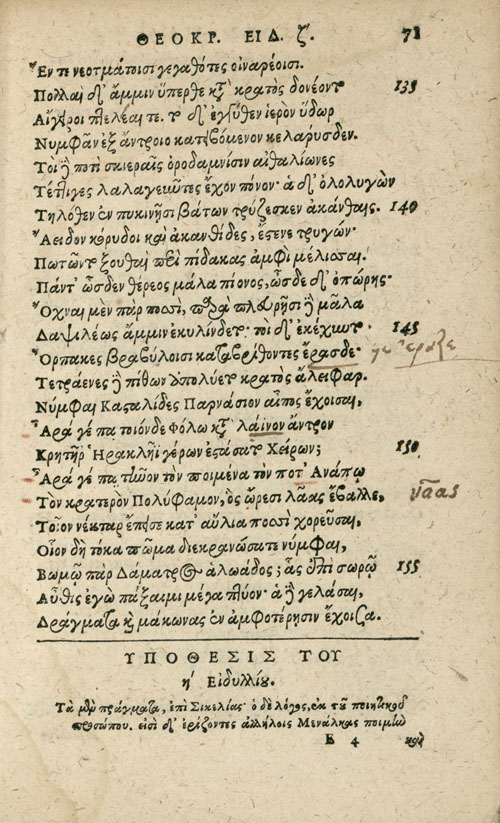 ΘΕΟΚΡ. ΕΙΔ. ζ. 71
Ἔν τε νεοτμάτοισι γεγαθότες οἰναρέοισι.
Πολλαὶ δ' ἄμμιν ὕπερθε κỳ κρατὸς δονέοντο 135
Αἴγειροι πτελέαι τε. τὸ δ' ἐγγύθεν ἱερὸν ὕδωρ
Νυμφᾶν ἐξ ἄντροιο κατειβόμενον κελαρύσδεν.
Τοὶ ἢ ποτὶ σκιεραῖς ὀροδαμνίσιν αἰθαλίωνες
Τέττιγες λαλαγεῦντες ἔχον πόνον· ἁ δ' ὀλολυγὼν
Τηλόθεν ἐν πυκινῇσι βάτων τρύζεσκεν ἀκάνθαις. 140
Ἄειδον κόρυδοι καὶ ἀκανθίδες, ἔστενε τρυγών·
Πωτῶντο ξουθαὶ περὶ πίδακας ἀμφὶ μέλισσαι.
Πάντ' ὦσδεν θέρεος μάλα πίονος, ὦσδε δ' ὀπώρης·
Ὄχναι μὲν πὰρ ποσσὶ, παρὰ πλευρῇσι ἢ μᾶλα
Δαψιλέως ἄμμιν ἐκυλίνδετο· τοὶ δ' ἐκέχυντο 145
Ὄρπακες βραβύλοισι καταβρίθοντες ἔρασδε·
Τετράενες ἢ πίθων ἀπολύετο κρατὸς ἄλειφαρ.
Νύμφαι Κασταλίδες Παρνάσιον αἶπος ἔχοισαι,
Ἆρά γέ πα τοιόνδε Φόλω κỳ λάϊνον ἄντρον
Κρητῆρ' Ἡρακλῆϊ γέρων ἐστάσατο Χείρων; 150
Ἆρά γέ πα τῆνον τὸν ποιμένα τὸν ποτ' Ἀνάπῳ
Τὸν κρατερὸν Πολύφαμον, ὃς ὤρεσι λᾶας ἔβαλλε, νᾶας
Τοῖον νέκταρ ἔπεισε κατ' αὔλια ποσσὶ χορεῦσαι,
Οἷον δὴ τόκα πῶμα διεκρανώσατε νύμφαι,
Βωμῷ πὰρ Δάματρος ἀλωάδος; ἇς ἐπὶ σωρῷ 155
Αὖθις ἐγὼ πάξαιμι μέγα πτύον· ἁ ἢ γελάσαι,
Δράγματα κỳ μάκωνας ἐν ἀμφοτέρησιν ἔχοισα.
ΥΠΟΘΕΣΙΣ ΤΟΥ
ή Εἰδυλλίου.
Τὰ μὲν πράγματα, ἐπὶ Σικελίας· ὁ δὲ λόγος, ἐκ τοῦ ποιητικοῦ
προσώπου. εἰσὶ δ' ἐρίζοντες ἀλλήλοις Μενάλκας ποιμὴν
E 4 καὶ